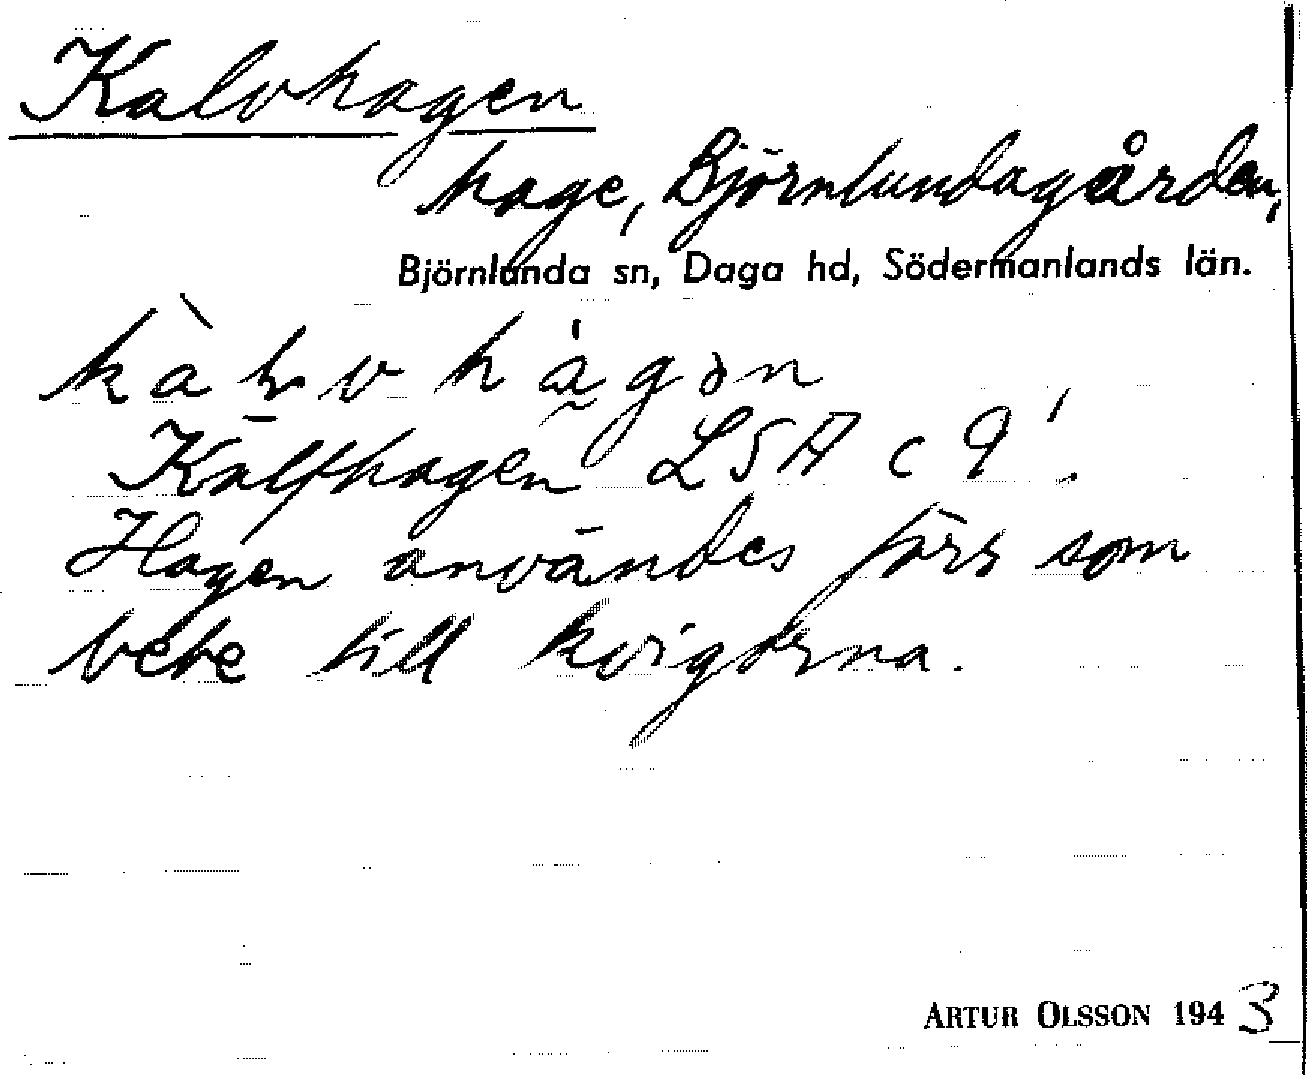 Kalvhagen
hage, Björnlundagården,
Björnlunda sn, Daga hd, Södermanlands län.
Kalfhagen LSA c 9'.
Hagen användes förr som
bete till kvigorna.
ARTUR OLSSON 1943